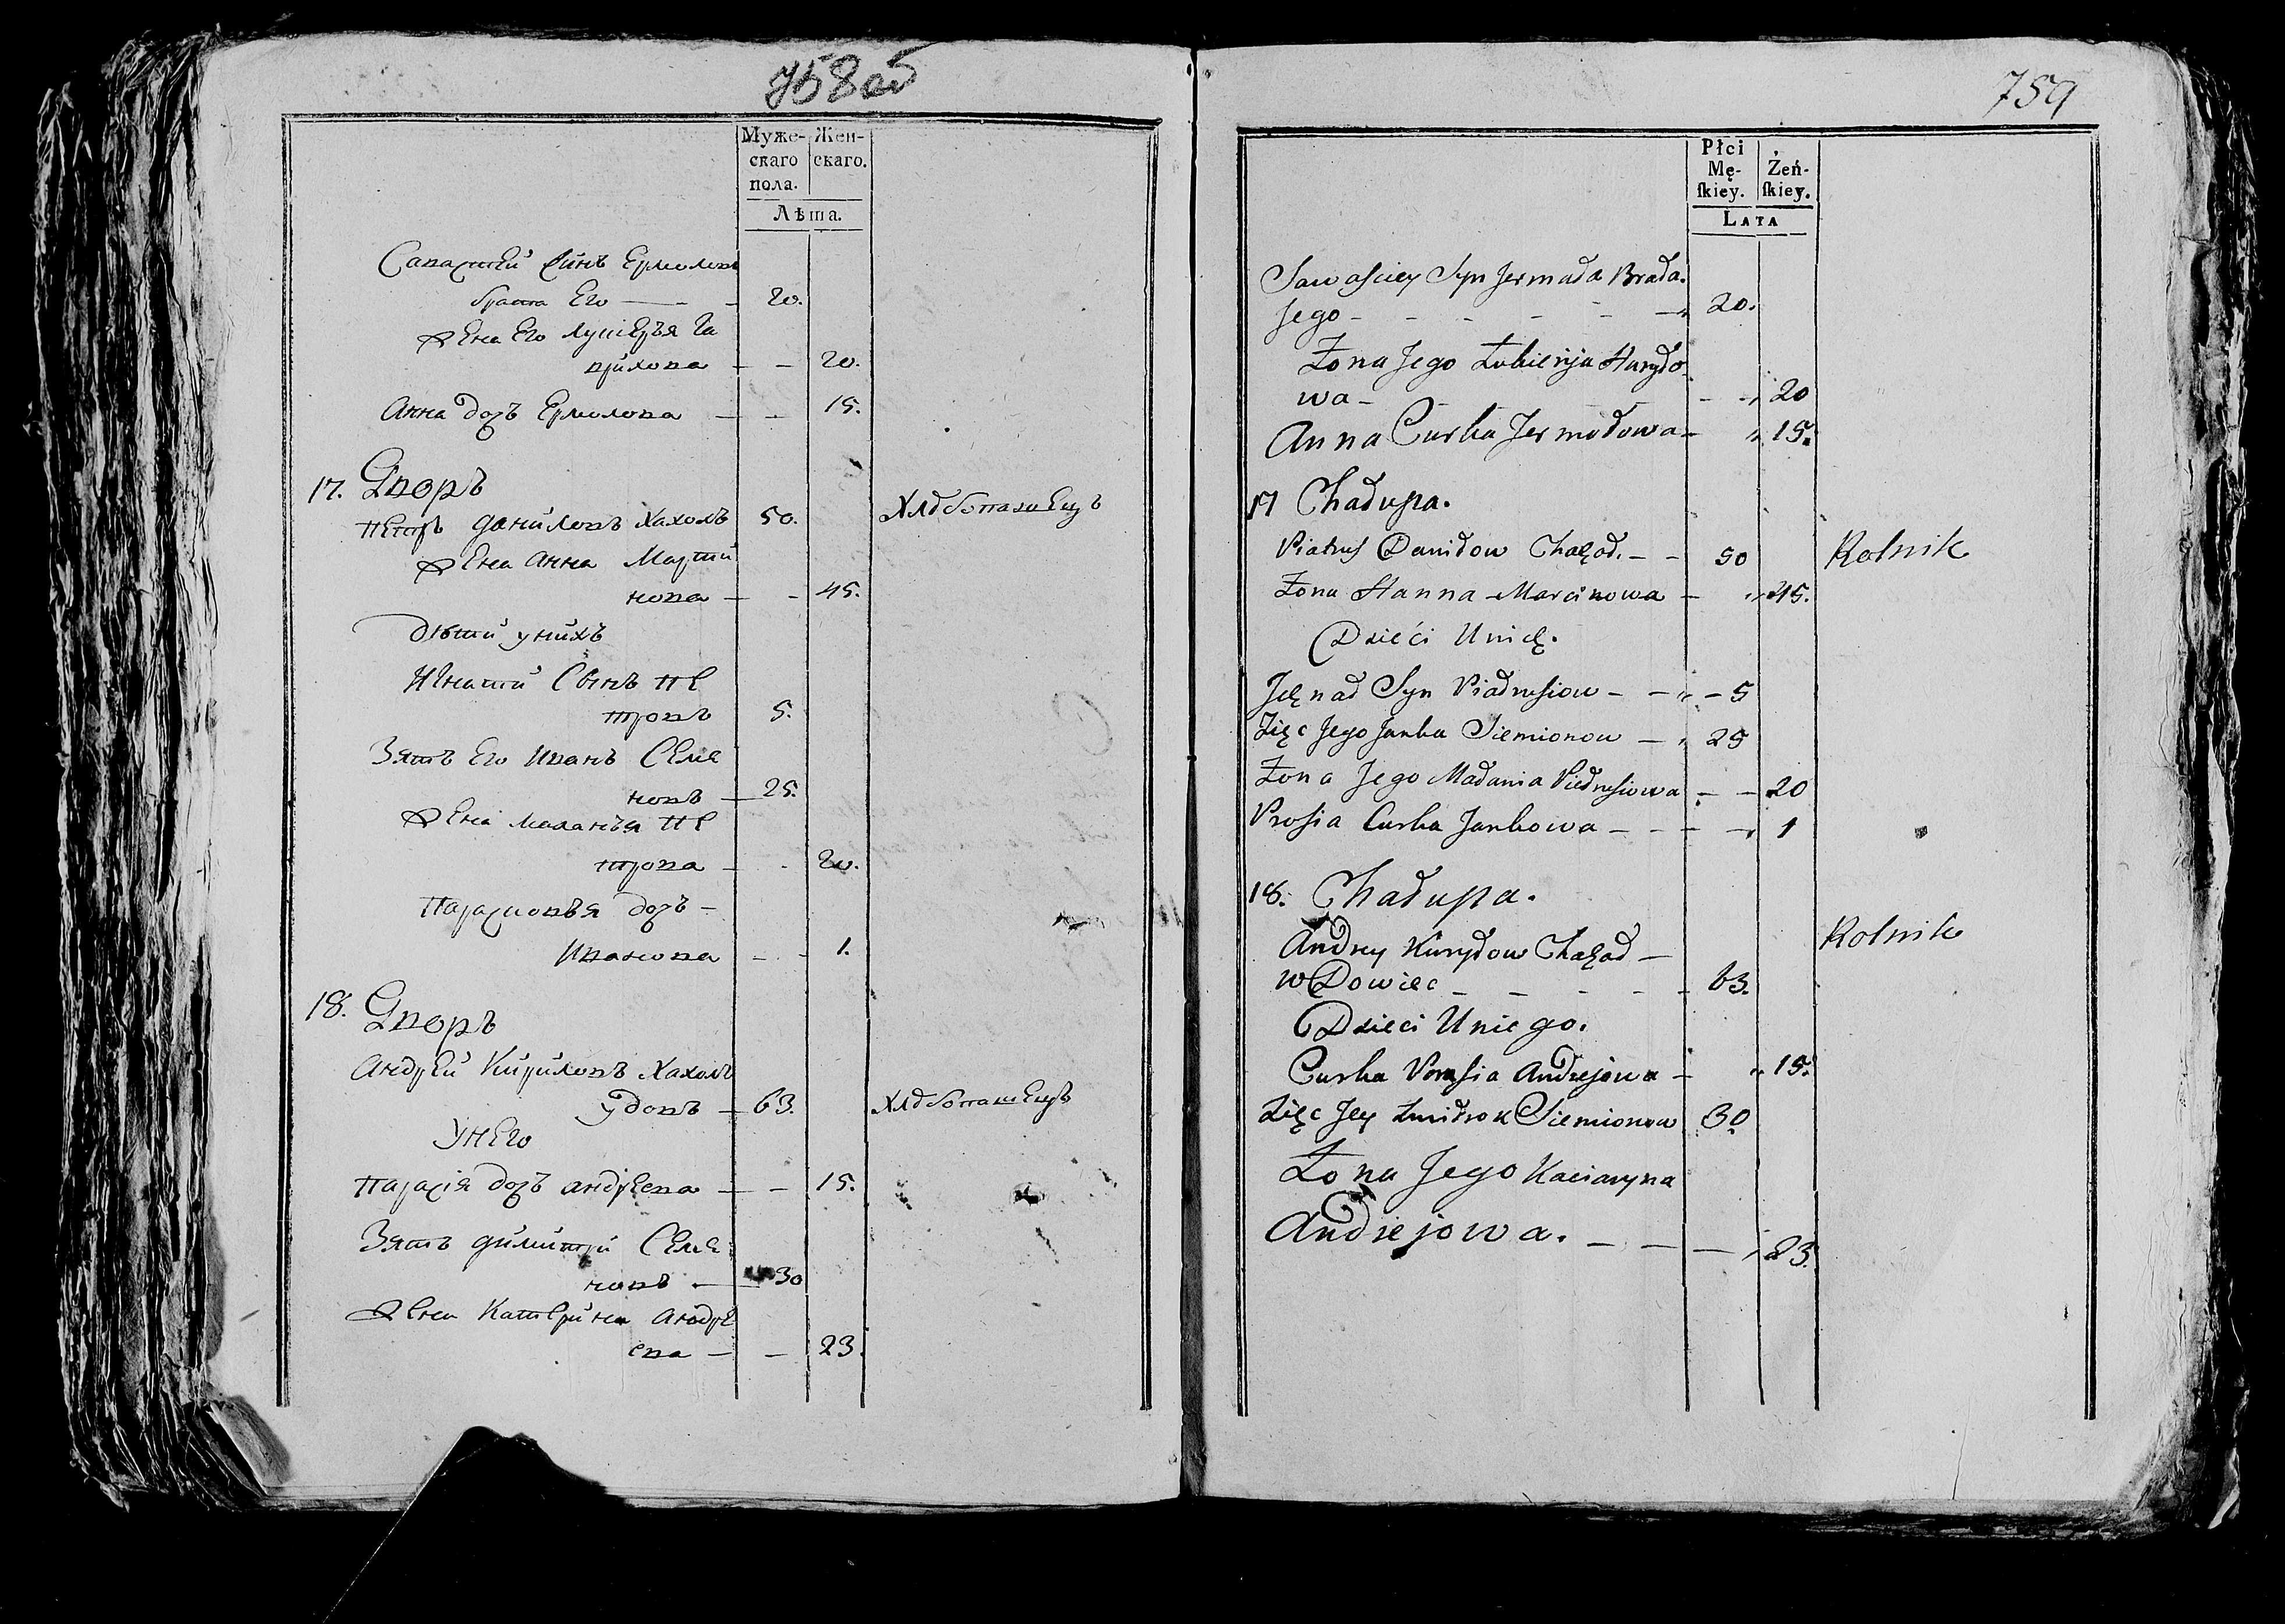 758об
Муже- Жен-
скаго скаго.
пола.
Лѣта.
Савастей Синъ Ермоловъ
брата Его — 20.
Жена Его Лукерья Га
врилова — — 20.
Анна дочъ Ермолова — — 15.
17. Дворъ
Петръ Даниловъ Хахолъ 50. Хлѣбопашецъ
Жена Анна Марти
нова — - 45.
Дѣти у нихъ
Игнатій Сынъ Пе
тровъ 5.
Зять Его Иванъ Семе
новъ — 25.
Жена Маланья Пе
трова — - 20.
Парасковья дочъ —
Иванова — - 1.
18. Дворъ
Андрей Кириловъ Хахолъ
удовъ — 63. Хлѣбопашецъ
У нЕго
Парасія дочъ Андреева — — 15.
Зять Димитрй Семе
новъ — 30
Жена Катерина Андре
ева — — 23.
759
Płci Żeń-
Mę- skiey.
skiey.
LATA
Sawaściey Syn Jermała Brada.
Jego - - - - - 20.
Żona Jego Łukierija Haryło
wa - - - 20
Anna Curka Jermołowa - 15.
17 Chałupa.
Piatruś Daniłow Chaḥoł. - - 50 Rolnik
Żona Hanna Marcinowa - 45.
Dzieci Unich.
Jḥnad Syn Piadrusiow - - - 5
Zięc Jego Janka Siemionow - 25
Żona Jego Małania Piedrusiowa - - 20
Prosia Curka Jankowa - - - 1
18. Chałupa.
Andrey Kiryłow Chaḥoł - Rolnik
wDowiec - - - - - 63.
Dzieci Uniego.
Curka Parasia Andrejowa - 15.
Zięc Jey Zmitrok Siemionow 30
Żona Jego Kaciaryna
Andrejowa. - - - 23.